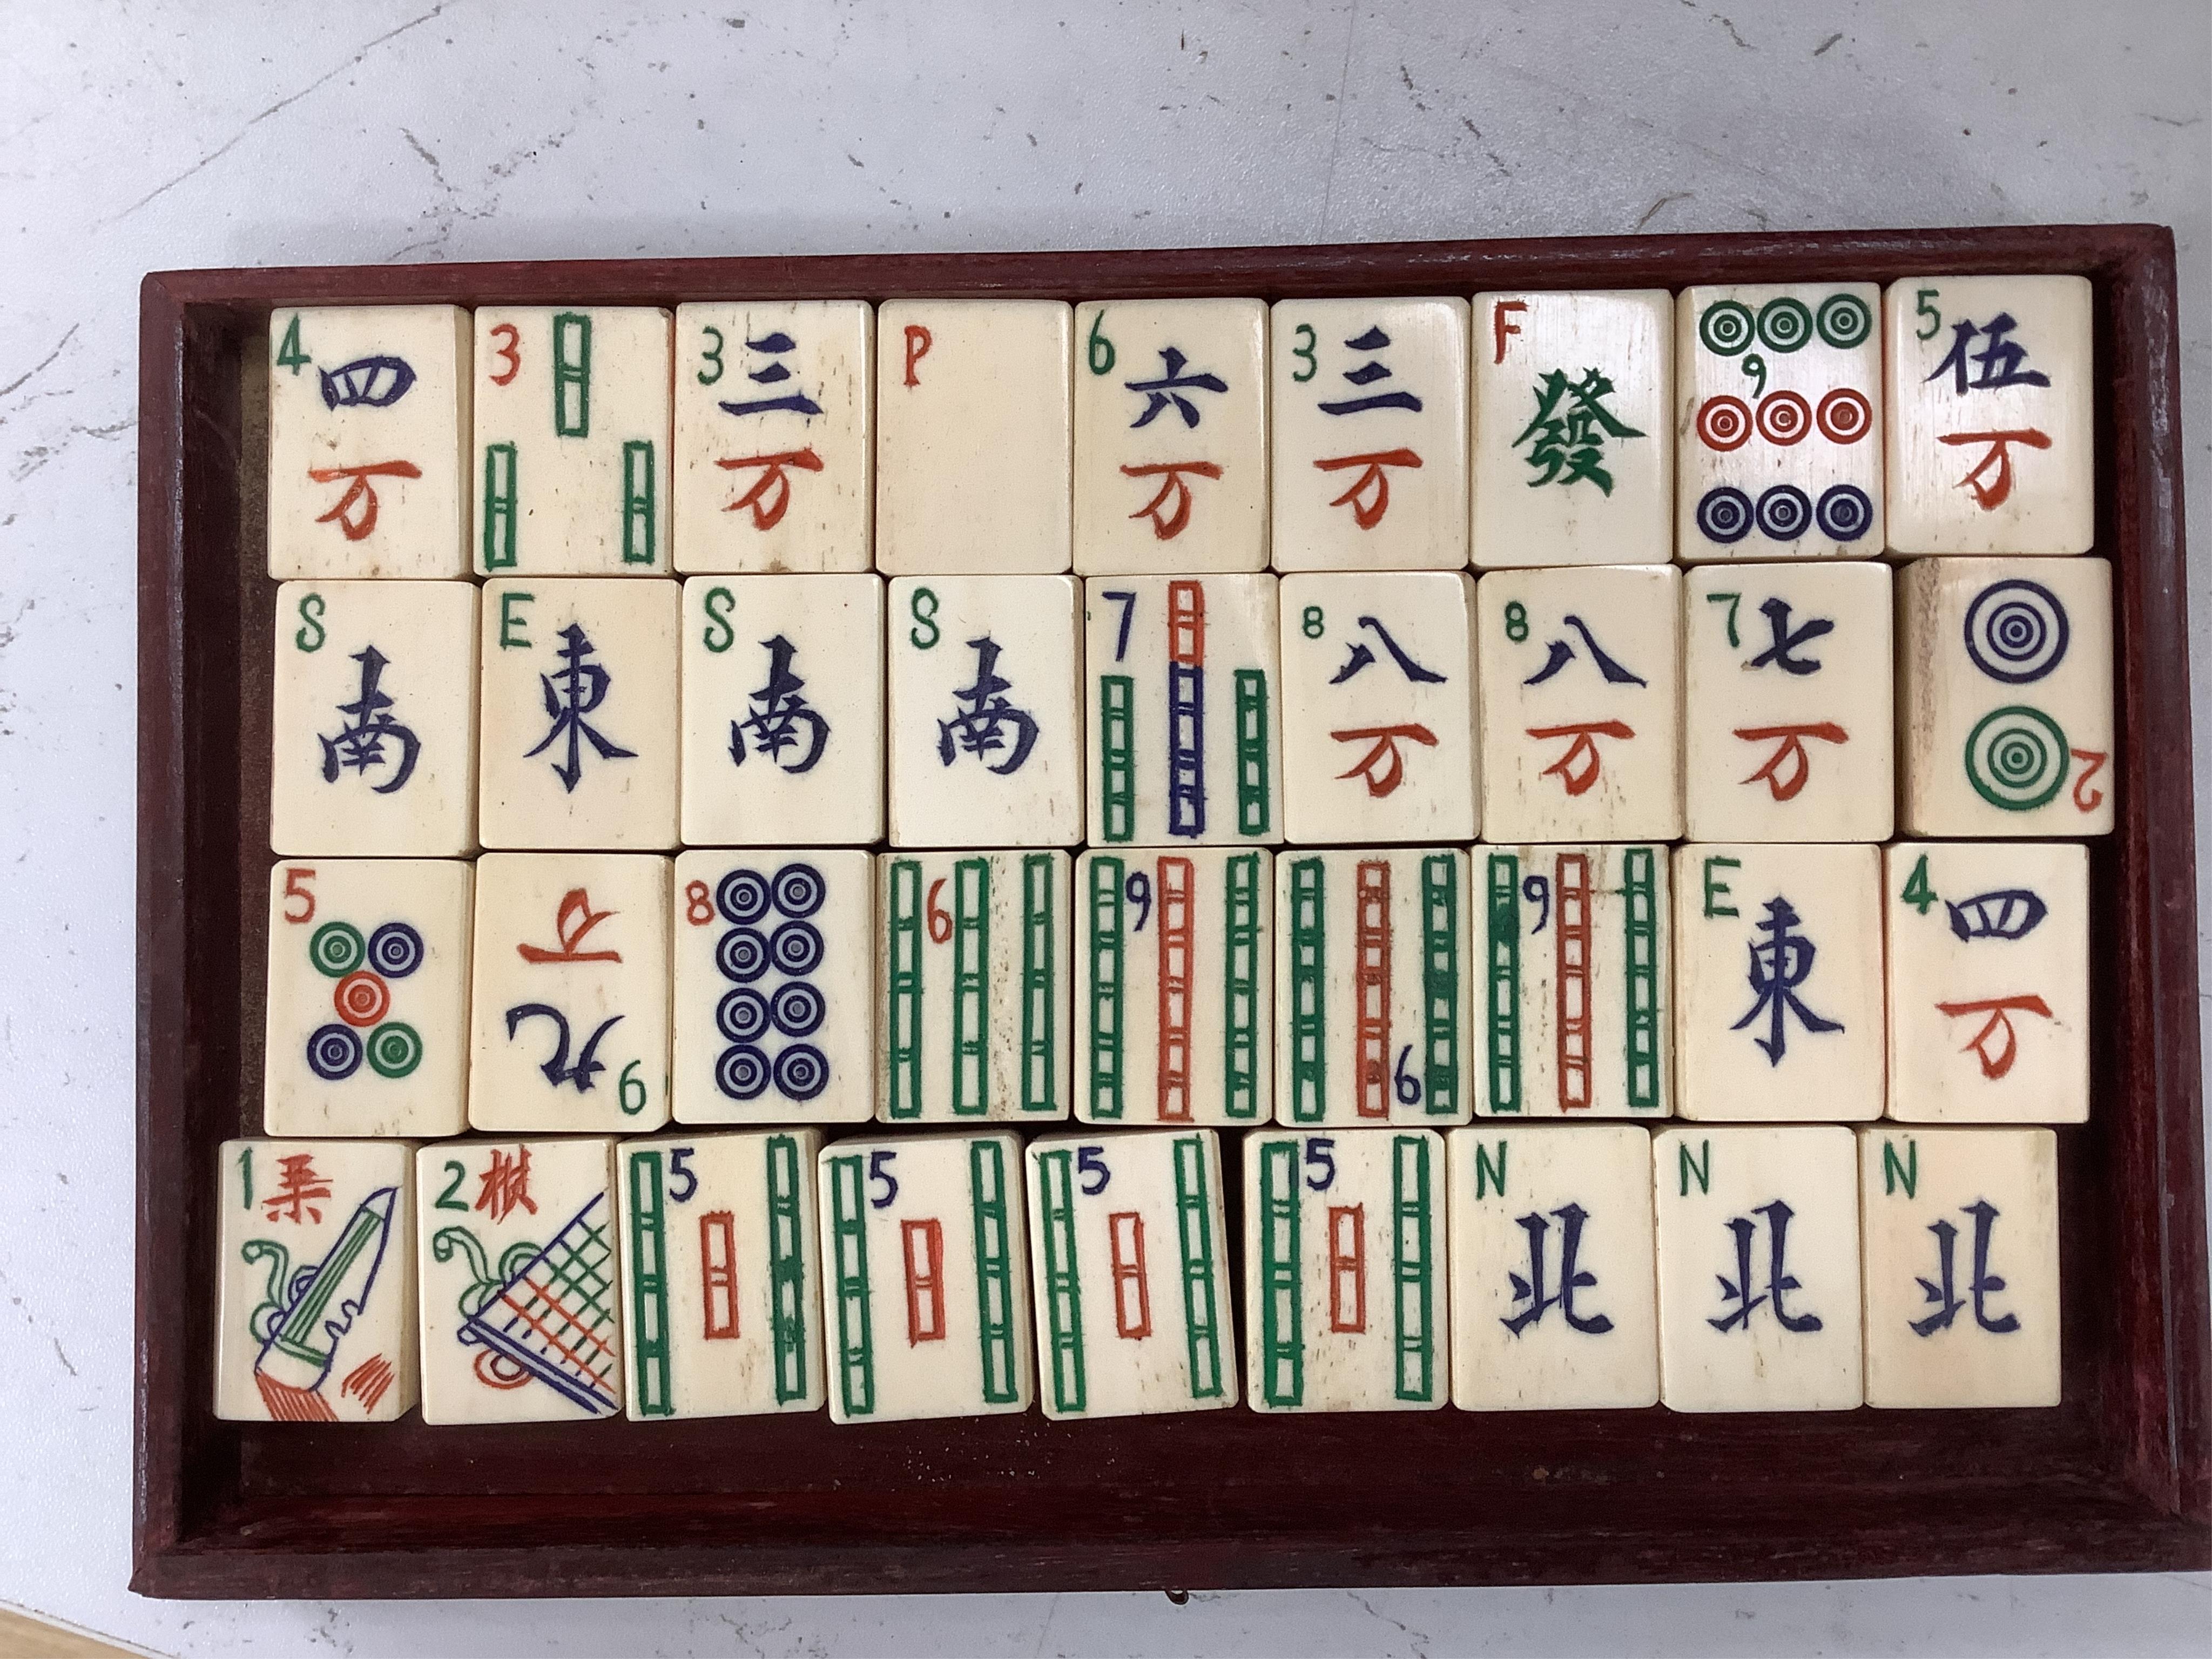 4 四
万
3
3 三
万
P
6 六
万
3 三
万
F
發
9
5 伍
万
S
南
E
東
S
南
S
南
7
8 八
万
8 八
万
7 七
万
2
5
9 九
万
8
6
9
9
9
E
東
4 四
万
1 琹
2 棋
5
5
5
5
N
北
N
北
N
北